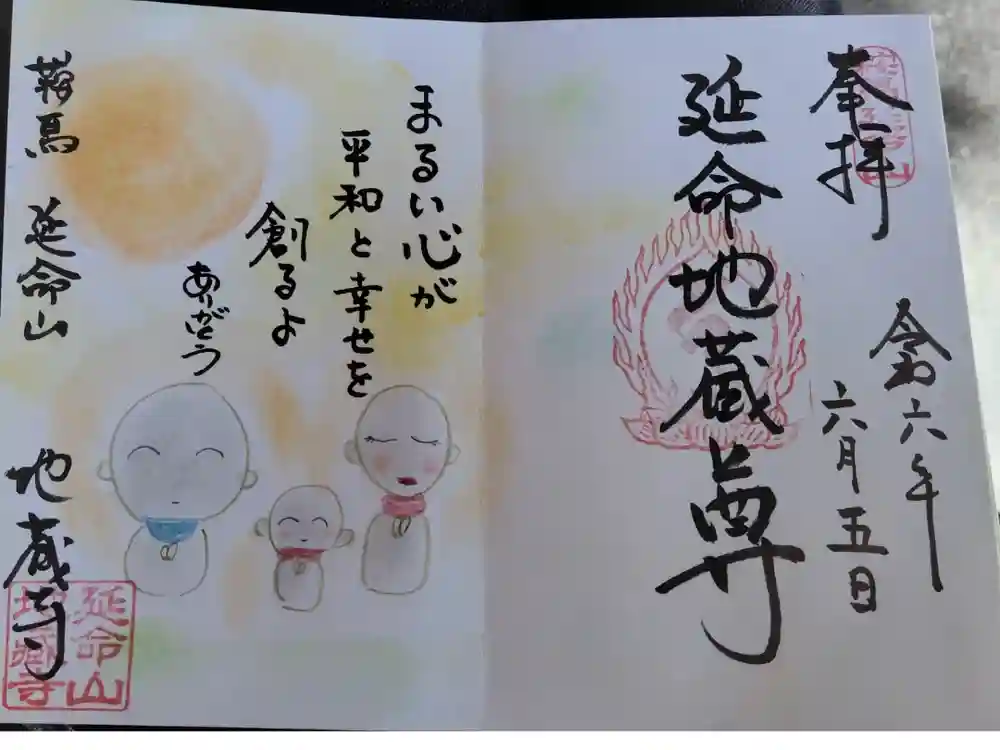 奉拝
令六年
六月五日
延命地蔵尊
まるい心が
平和と幸せを
創るよ
ありがとう
鞍馬 延命山 地蔵寺
延命山
地蔵寺